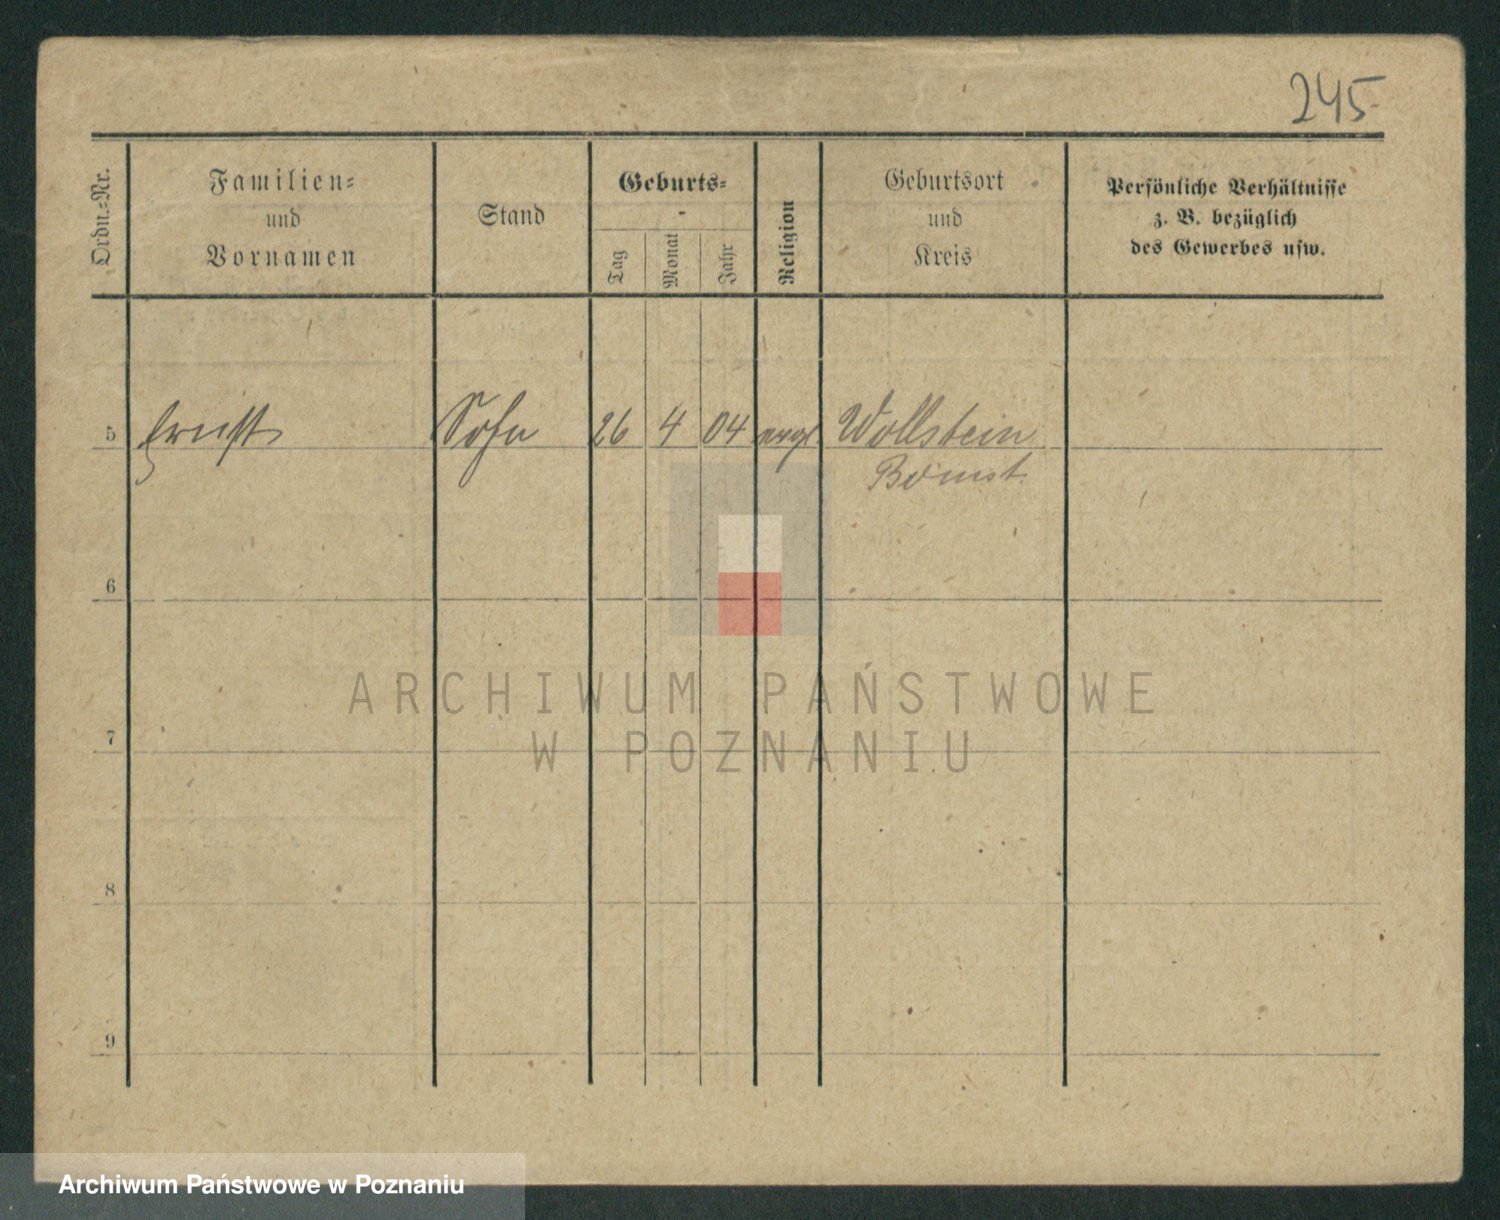 245.
Ordn.=Nr.
Familien=
und
Vornamen
Stand
Geburts=
Tag
Monat
Jahr
Religion
Geburtsort
und
Kreis
Persönliche Verhältnisse
z. B. bezüglich
des Gewerbes usw.
5 Ernst Sohn 26 4 04 evgl Wollstein
Bomst.
6
7
8
9
ARCHIWUM PAŃSTWOWE
W POZNANIU
Archiwum Państwowe w Poznaniu